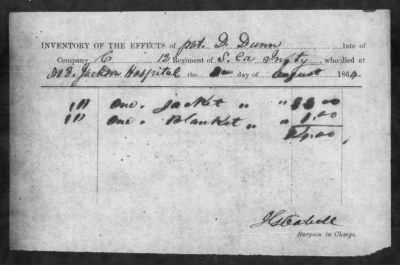 INVENTORY OF THE EFFECTS of pvt. D. Dunn late of
Company C 12 Regiment of S. Ca Infty who died at
No 2. Jackson Hospital the day of August 1864
1 One. Jacket " "
1 One. Blanket " " 1.00
Surgeon in Charge.